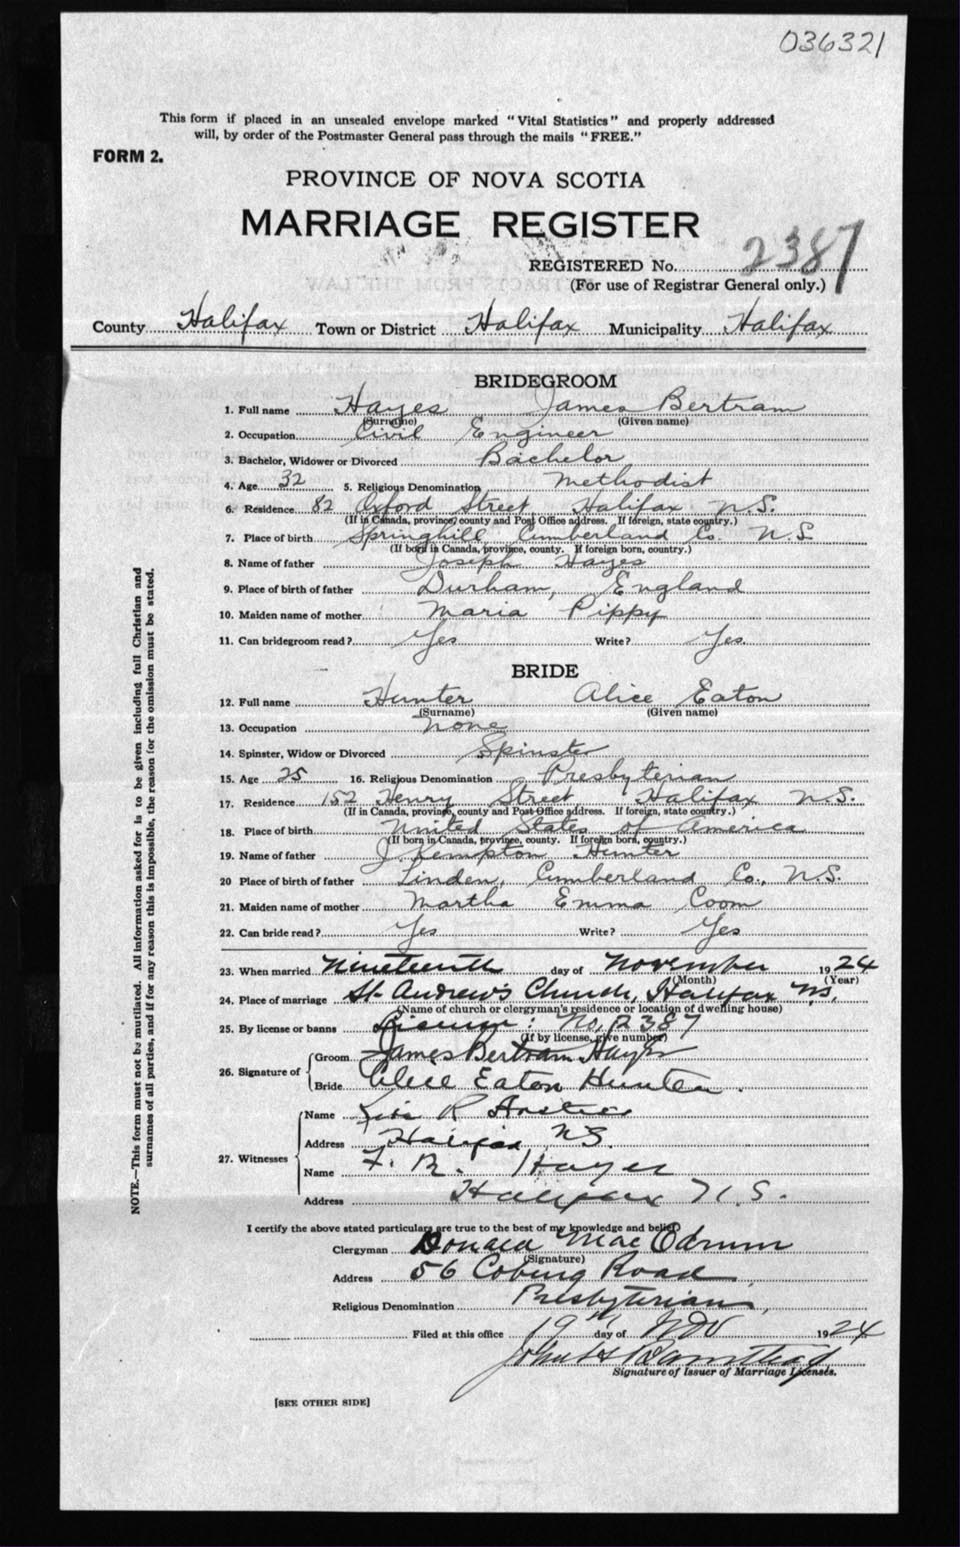 036321
This form if placed in an unsealed envelope marked "Vital Statistics" and properly addressed
will, by order of the Postmaster General pass through the mails "FREE."
FORM 2.
PROVINCE OF NOVA SCOTIA
MARRIAGE REGISTER
REGISTERED No. 2387
(For use of Registrar General only.)
County Halifax Town or District Halifax Municipality Halifax
BRIDEGROOM
1. Full name Hayes James Bertram
(Surname) (Given name)
2. Occupation Civil Engineer
3. Bachelor, Widower or Divorced Bachelor
4. Age 32 5. Religious Denomination Methodist
6. Residence 82 Oxford Street Halifax N.S.
(If in Canada, province, county and Post Office address. If foreign, state country.)
7. Place of birth Springhill Cumberland Co. N.S
(If born in Canada, province, county. If foreign born, country.)
8. Name of father Joseph Hayes
9. Place of birth of father Durham, England
10. Maiden name of mother Maria Pippy
11. Can bridegroom read? Yes Write? Yes.
BRIDE
12. Full name Hunter Alice Eaton
(Surname) (Given name)
13. Occupation None
14. Spinster, Widow or Divorced Spinster
15. Age 25 16. Religious Denomination Presbyterian
17. Residence 152 Henry Street Halifax N.S.
(If in Canada, province, county and Post Office address. If foreign, state country.)
18. Place of birth United States of America
(If born in Canada, province, county. If foreign born, country.)
19. Name of father J. Kempton Hunter
20 Place of birth of father Linden, Cumberland Co., N.S.
21. Maiden name of mother Martha Emma Coom
22. Can bride read? Yes Write? Yes
23. When married Nineteenth day of November 1924
(Month) (Year)
24. Place of marriage St. Andrew's Church, Halifax NS,
(Name of church or clergyman's residence or location of dwelling house)
25. By license or banns License: No, 2387
(If by license, give number)
26. Signature of Groom James Bertram Hayes
Bride Alice Eaton Hunter.
27. Witnesses
Name R
Address Halifax NS.
Name F. R. Hayes
Address Halifax N.S.
I certify the above stated particulars are true to the best of my knowledge and belief
Clergyman Donald Mac Odrum
(Signature)
Address 56 Coburg Road,
Religious Denomination Presbyterian,
Filed at this office 19th day of Nov 1924
John H
Signature of Issuer of Marriage Licenses.
[SEE OTHER SIDE]
NOTE.—This form must not be mutilated. All information asked for is to be given including full Christian and
surnames of all parties, and if for any reason this is impossible, the reason for the omission must be stated.